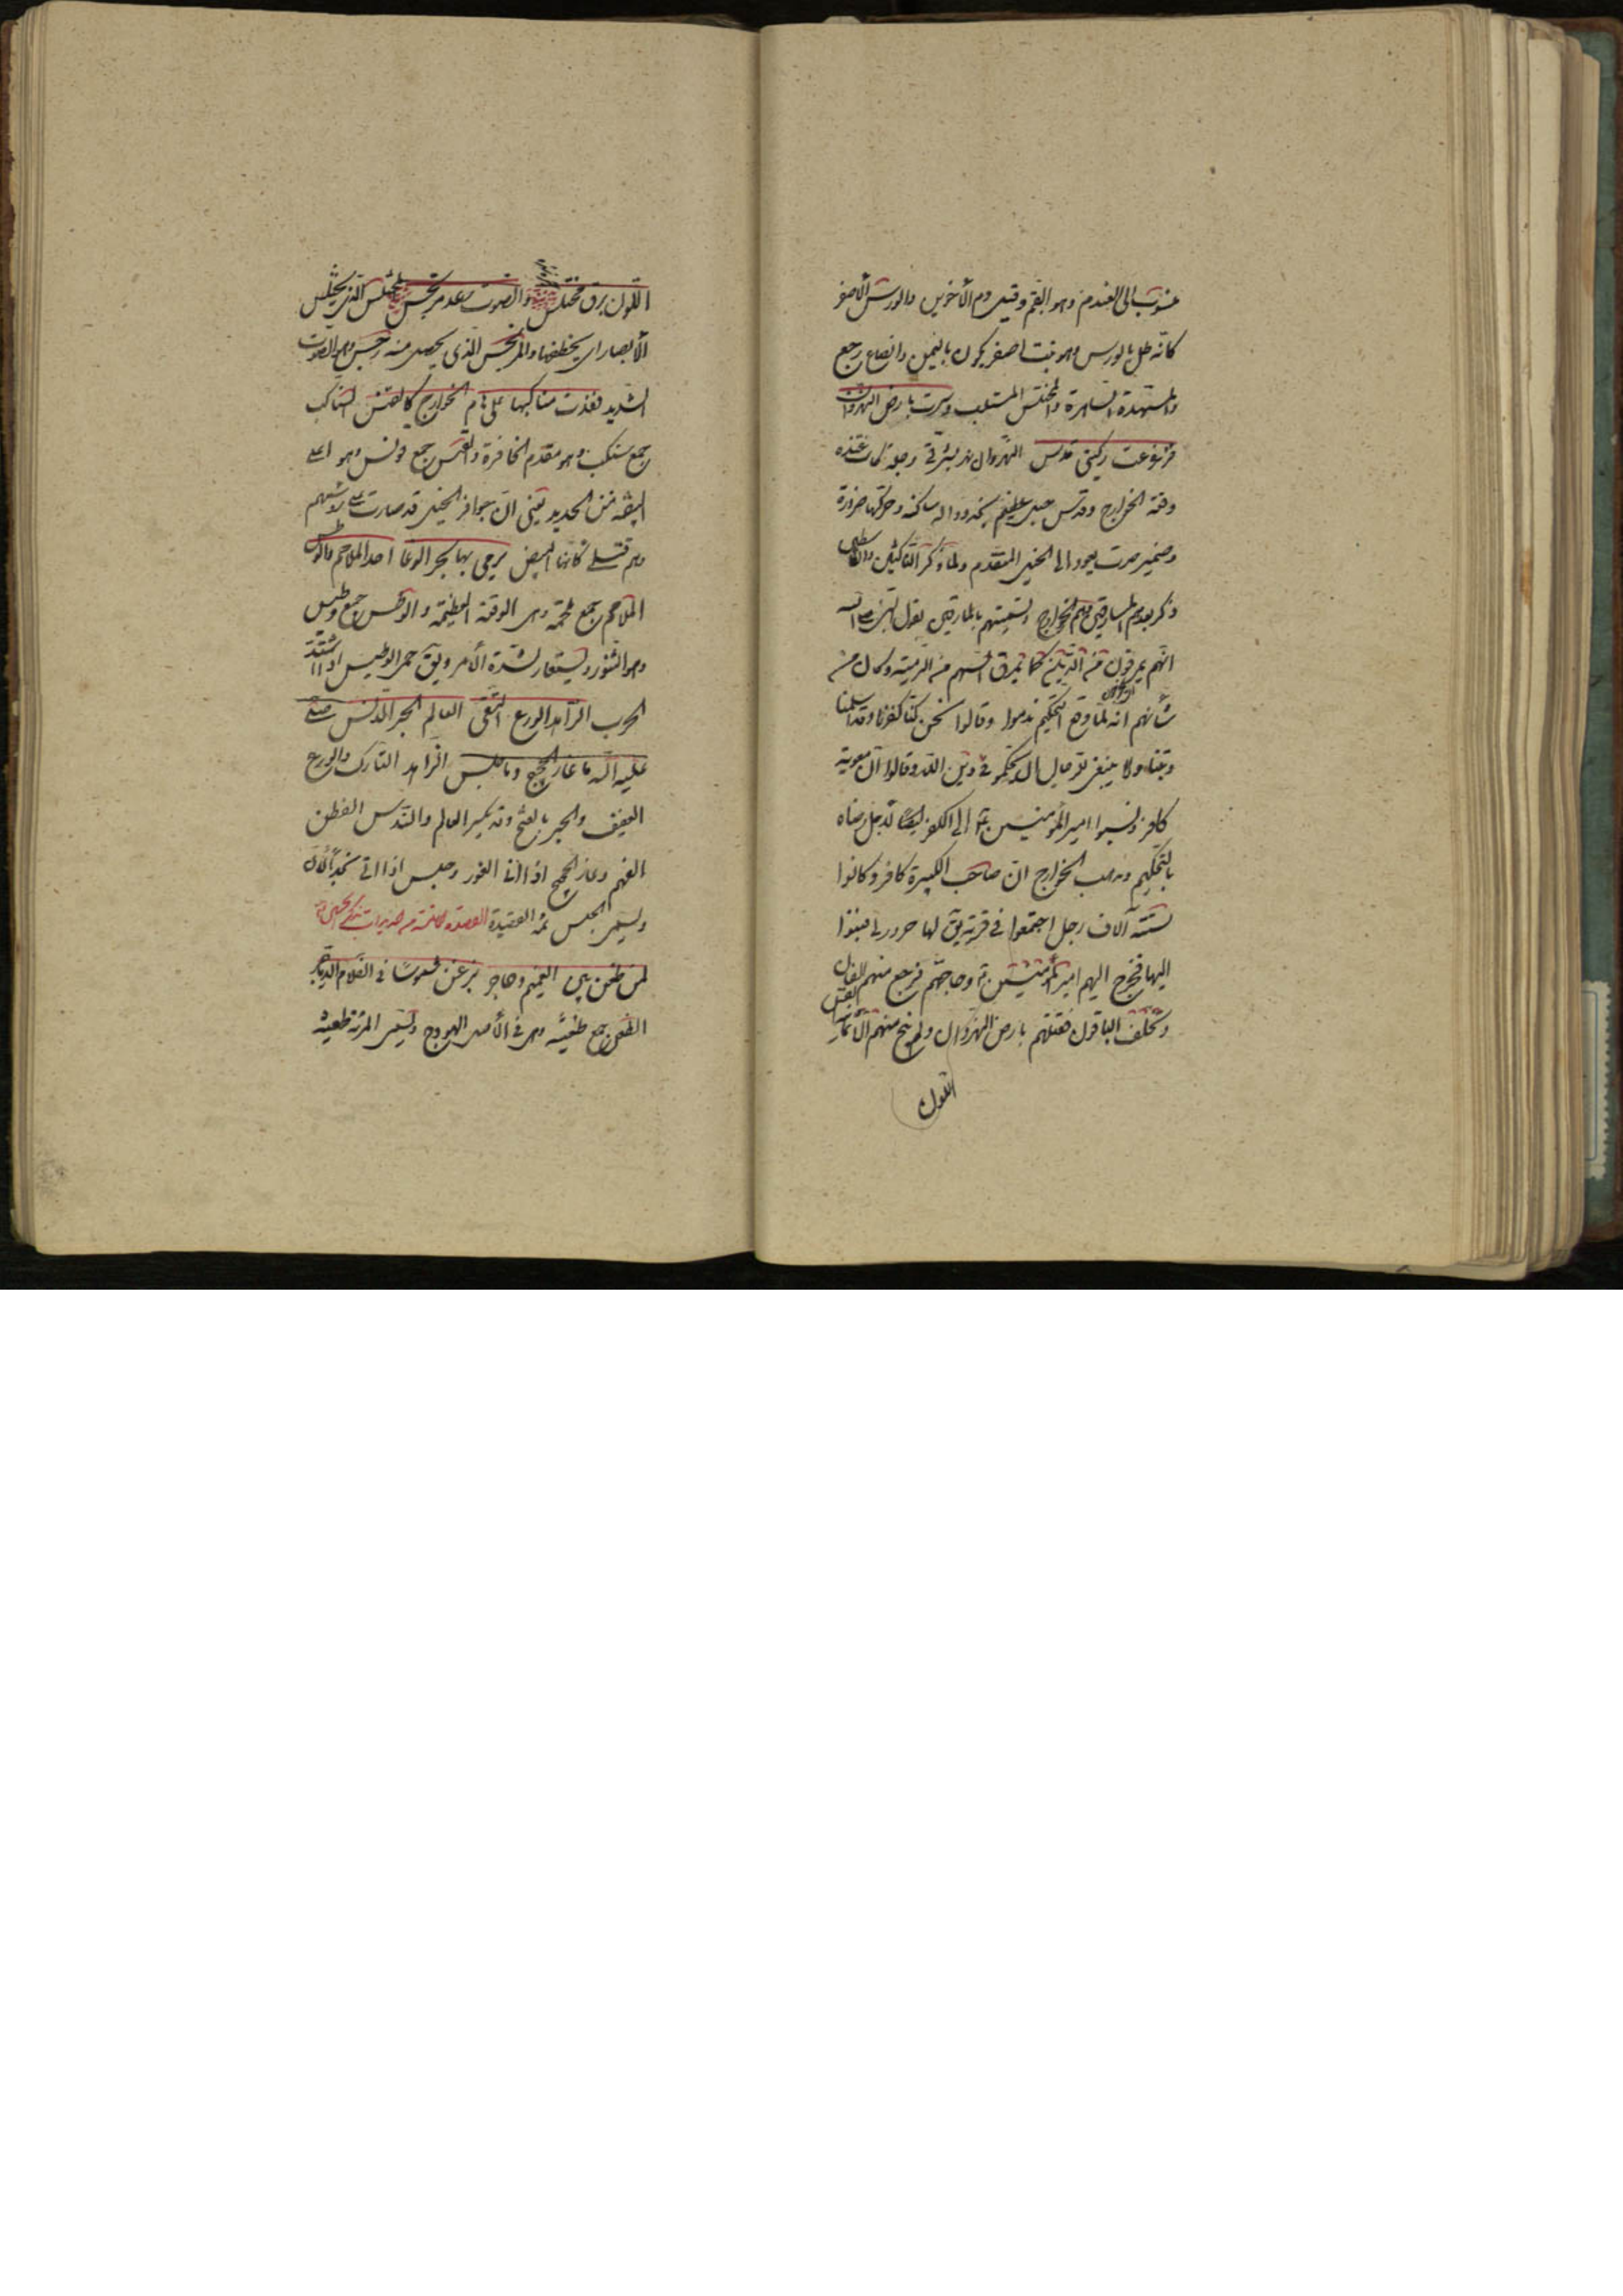 منسوب الى العندم وهو البقم وقيل دم الأخوين والورس الأصفر
كانه طلى بالورس وهو نبت اصفر يكون باليمن وانصاع رجع
والمسهدة الساهرة والمختلس المستلب وسرت بارض النهروان
فزعزعت ركنى قدس النهروان شرقى دجلة كانت عنده
وقعة الخوارج وقدس جبل عظيم بنجد وداله ساكنه وحركتها ضرورة
وضمير سرت يعود الى الخيل المتقدم ولما ذكر الناكثين والقاسطين
ذكر بعدهم المارقين وهم الخوارج وتسميتهم بالمارقين لقول النبى صلى الله
انهم يمرقون من الدين كما يمرق السهم من الرمية وكان من
شأنهم انه لما وقع التحكيم ندموا وقالوا نحن كنا كفرنا وقد اسلمنا
وتبنا ولا ينبغى للرجال ان تحكم فى دين الله وقالوا ان معوية
كافر ونسبوا امير المؤمنين ع الى الكفر ايضا لاجل رضاه
بالتحكيم ومذهب الخوارج ان صاحب الكبيرة كافر وكانوا
ستة آلاف رجل اجتمعوا فى قرية يق لها حرورا فنسبوا
اليها فخرج اليهم امير المؤمنين ع وحاجهم فرجع منهم الفان
وتخلف الباقون فقتلهم بارض النهروان ولم ينج منهم الا ثمانية
اللون
اللون برق مختلس والصوت رعد مرتجس المختلس الذى يختلس
الأبصار اى يخطفها والمرتجس الذى يحصل منه رجس وهو الصوت
الشديد فغدت سنابكها على هام الخوارج كالقنس السنابك
جمع سنبك وهو مقدم الحافرة والقنس جمع قونس وهو اعلى
البيضه من الحديد يعنى ان حوافر الخيل قد صارت على رؤسهم
وهم قتلى كانها البيض يرمى بها بحر الوغا اسد الملاحم والوطس
الملاحم جمع ملحمة وهى الوقعة العظيمة والوطس جمع وطيس
وهو التنور ويستعار لشدة الأمر ويق حمى الوطيس اذا اشتد
الحرب الزاهد الورع التقى العالم الحبر الندس صلى
عليه الله ما غار الحجيج وما جلس الزاهد التارك والورع
العفيف والحبر بالفتح وقد يكسر العالم والندس الفطن
الفهم وغار الحجيج اذا اتى الغور وجلس اذا اتى نجدا لان
ويسمى الجلس تمت القصيدة
لمن ظعن بين الغميم وحاجر بزغن شموسا فى الظلام الدياجر
الظعن جمع ظعينة وهى فى الأصل الهودج وتسمى المرئة ظعينة